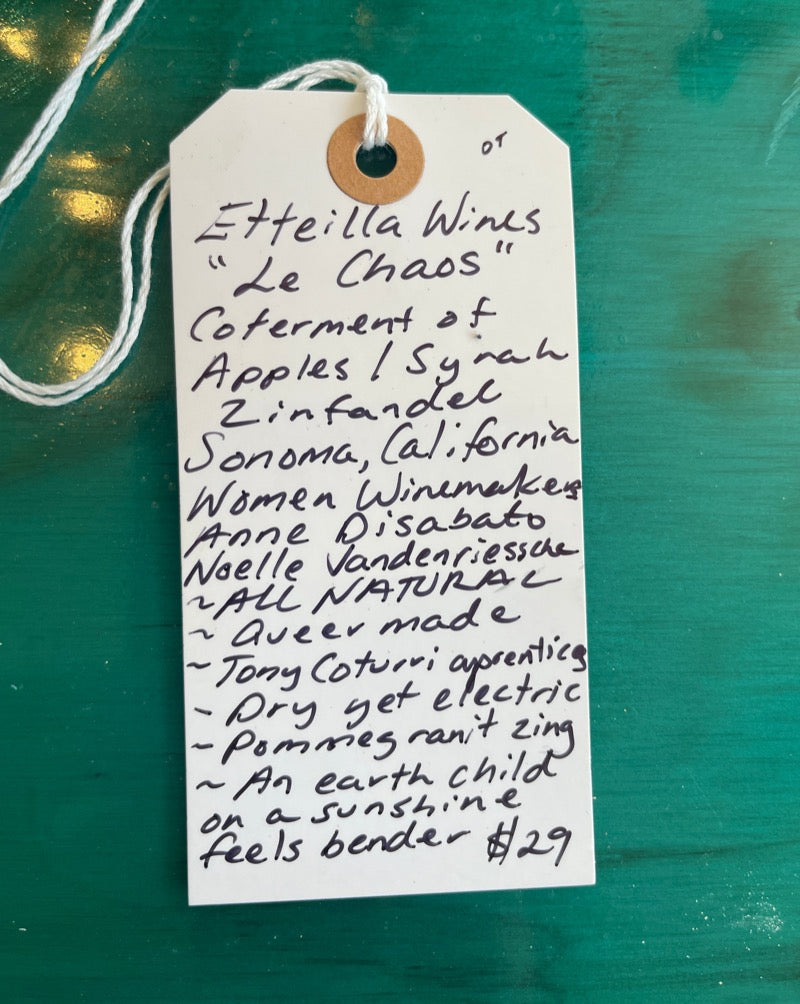 OT
Etteilla Wines
"Le Chaos"
Coferment of
Apples / Syrah
Zinfandel
Sonoma, California
Women Winemakers
Anne Disabato
Noelle Vandenriessche
~ALL NATURAL
~ Queer made
~Tony Coturri apprentices
- Dry yet electric
~ Pommegranit zing
~ An earth child
on a sunshine
feels bender $29